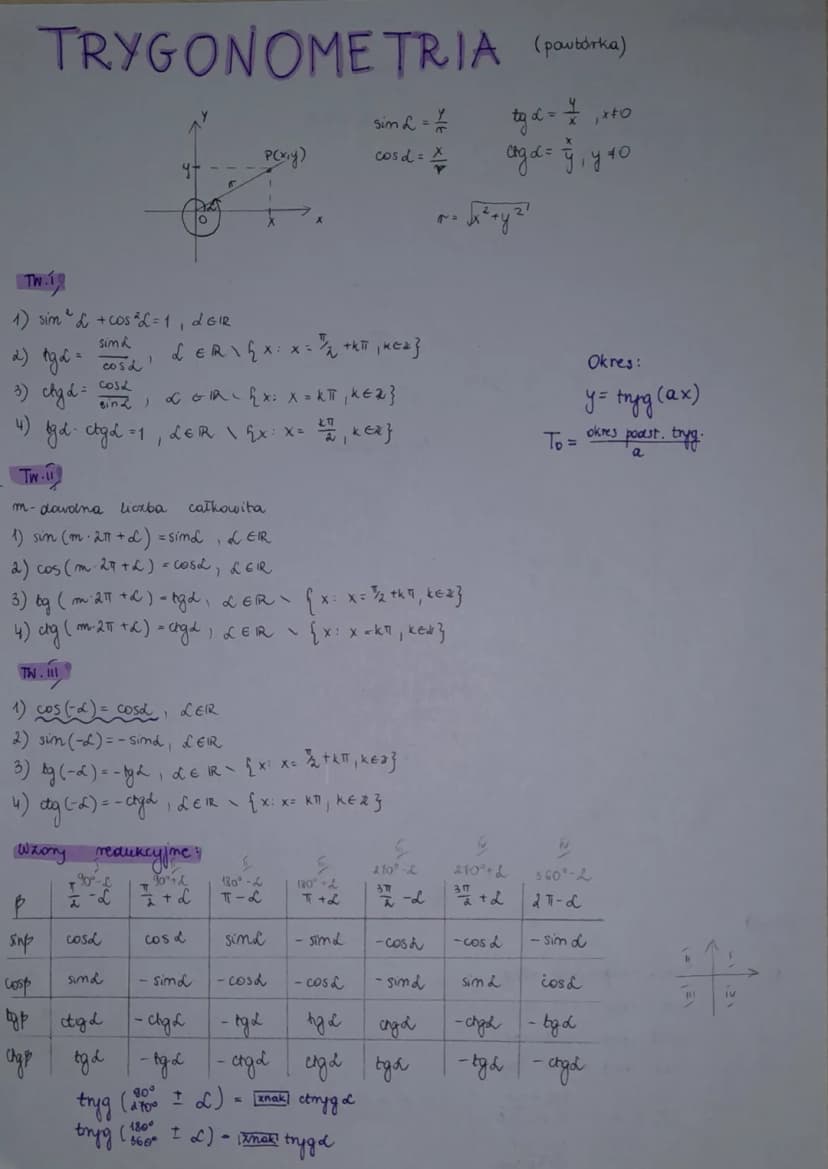 TRYGONOMETRIA (powtórka)
y
y
P(x,y)
r
α
0
x
x
sin α = y/r
tg α = y/x , x≠0
cos α = x/r
ctg α = x/y , y≠0
r = √x²+y²
Tw. I
1) sin²α + cos²α = 1 , α∈ℝ
2) tgα = sinα/cosα , α ∈ ℝ \ {x: x = π/2 + kπ , k∈Z}
3) ctgα = cosα/sinα , α ∈ ℝ \ {x: x = kπ , k∈Z}
4) tgα · ctgα = 1 , α∈ℝ \ {x: x = kπ/2 , k∈Z}
Okres:
y = tryg (ax)
T₀ = okres podst. tryg./a
Tw. II
m- dowolna liczba całkowita
1) sin (m·2π + α) = sinα , α∈ℝ
2) cos (m·2π + α) = cosα , α∈ℝ
3) tg (m·2π + α) = tgα , α∈ℝ \ {x: x = π/2 + kπ , k∈Z}
4) ctg (m·2π + α) = ctgα , α∈ℝ \ {x: x = kπ , k∈Z}
Tw. III
1) cos(-α) = cosα , α∈ℝ
2) sin(-α) = -sinα , α∈ℝ
3) tg(-α) = -tgα , α∈ℝ \ {x: x = π/2 + kπ , k∈Z}
4) ctg(-α) = -ctgα , α∈ℝ \ {x: x = kπ , k∈Z}
Wzory redukcyjne:
90°-α 90°+α 180°-α 180°+α 270°-α 270°+α 360°-α
β π/2 - α π/2 + α π - α π + α 3π/2 - α 3π/2 + α 2π - α
sinβ cosα cosα sinα -sinα -cosα -cosα -sinα
cosβ sinα -sinα -cosα -cosα -sinα sinα cosα
tgβ ctgα -ctgα -tgα tgα ctgα -ctgα -tgα
ctgβ tgα -tgα -ctgα ctgα tgα -tgα -ctgα
II I
III IV
tryg (90° 270° ± α) = znak ctryg α
tryg (180° 360° ± α) = znak tryg α